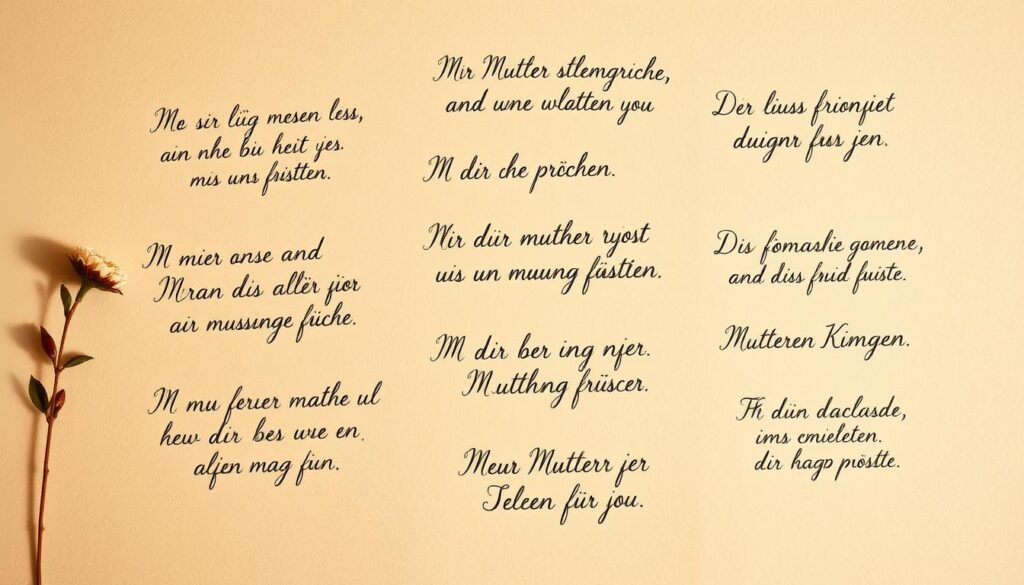 Me sir lüg mesen less,
ain nhe bü heit yes.
mis uns fristten.
M mier onse and
Mran dis allër jior
air mussınge füche.
M mu ferer mathe ul
hew dir bes wre en.
alfen mag fiın.
Mir Mutter stlemgriche,
and wne wlatten you
M dir che pröchen.
Nir düir muther ryost
uis un muung füstíen.
M dir ber ing njer.
Mutthng früscer.
Meur Mutterr jer
Jeleen für jou.
Der liuss frionjiet
duignr fuss jen.
Dis fömashie gomene,
and diss fruid fuiste.
Mutteren Kimgen.
Fh düın daclasde,
ims cmieleten.
dir hagp pıostte.